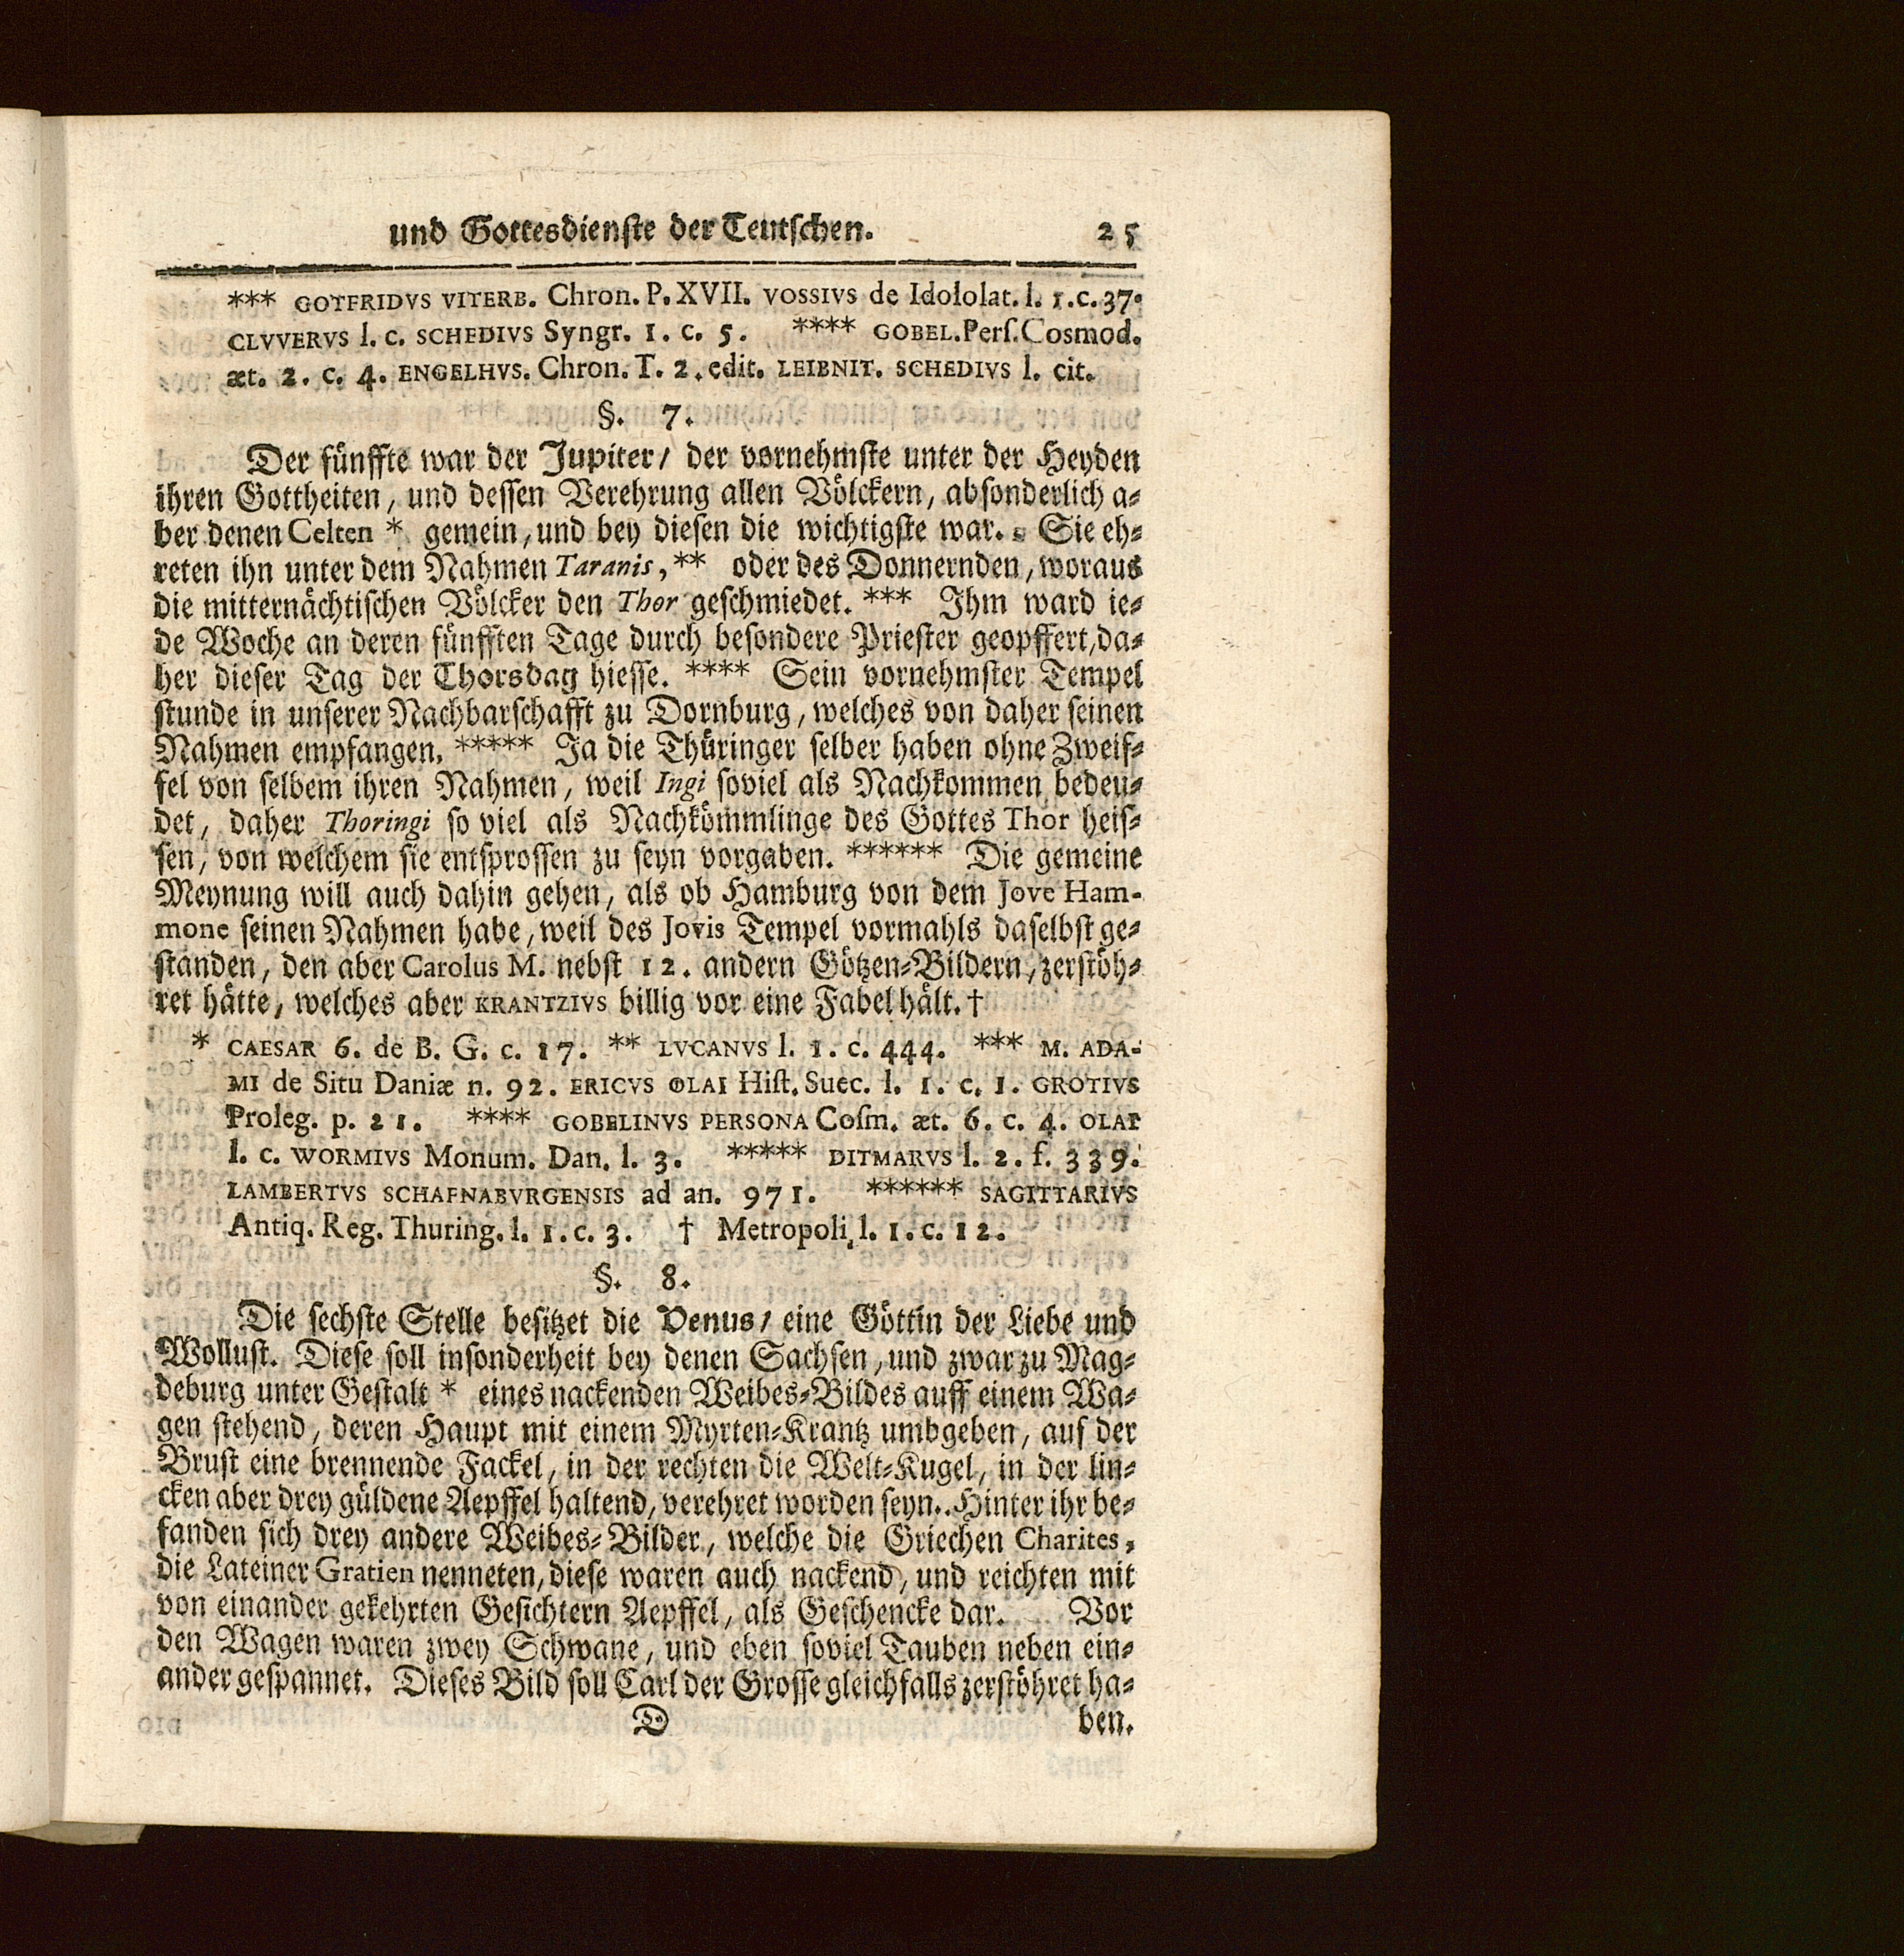 und Gottesdienste der Teutschen. 25
*** GOTFRIDVS VITERB. Chron. P. XVII. VOSSIVS de Idololat. l. 1. c. 37.
CLVVERVS l. c. SCHEDIVS Syngr. 1. c. 5. **** GOBEL. Perſ. Cosmod.
æt. 2. c. 4. ENGELHVS. Chron. T. 2. edit. LEIBNIT. SCHEDIVS l. cit.
§. 7.
Der fünffte war der Jupiter/ der vornehmste unter der Heyden
ihren Gottheiten, und dessen Verehrung allen Völckern, absonderlich a-
ber denen Celten * gemein, und bey diesen die wichtigste war. Sie eh-
reten ihn unter dem Nahmen Taranis, ** oder des Donnernden, woraus
die mitternächtischen Völcker den Thor geschmiedet. *** Ihm ward ie-
de Woche an deren fünfften Tage durch besondere Priester geopffert, da-
her dieser Tag der Thorsdag hiesse. **** Sein vornehmster Tempel
stunde in unserer Nachbarschafft zu Dornburg, welches von daher seinen
Nahmen empfangen. ***** Ja die Thüringer selber haben ohne Zweif-
fel von selbem ihren Nahmen, weil Ingi soviel als Nachkommen bedeu-
det, daher Thoringi so viel als Nachkömmlinge des Gottes Thor heis-
sen, von welchem sie entsprossen zu seyn vorgaben. ****** Die gemeine
Meynung will auch dahin gehen, als ob Hamburg von dem Jove Ham-
mone seinen Nahmen habe, weil des Jovis Tempel vormahls daselbst ge-
standen, den aber Carolus M. nebst 12. andern Götzen-Bildern, zerstöh-
ret hätte, welches aber KRANTZIVS billig vor eine Fabel hält. †
* CAESAR 6. de B. G. c. 17. ** LVCANVS l. 1. c. 444. *** M. ADA-
MI de Situ Daniæ n. 92. ERICVS OLAI Hiſt. Suec. l. 1. c. 1. GROTIVS
Proleg. p. 21. **** GOBELINVS PERSONA Coſm. æt. 6. c. 4. OLAI
l. c. WORMIVS Monum. Dan. l. 3. ***** DITMARVS l. 2. f. 339.
LAMBERTVS SCHAFNABVRGENSIS ad an. 971. ****** SAGITTARIVS
Antiq. Reg. Thuring. l. 1. c. 3. † Metropoli, l. 1. c. 12.
§. 8.
Die sechste Stelle besitzet die Venus/ eine Göttin der Liebe und
Wollust. Diese soll insonderheit bey denen Sachsen, und zwar zu Mag-
deburg unter Gestalt * eines nackenden Weibes-Bildes auff einem Wa-
gen stehend, deren Haupt mit einem Myrten-Krantz umbgeben, auf der
Brust eine brennende Fackel, in der rechten die Welt-Kugel, in der lin-
cken aber drey güldene Aepffel haltend, verehret worden seyn. Hinter ihr be-
fanden sich drey andere Weibes-Bilder, welche die Griechen Charites,
die Lateiner Gratien nenneten, diese waren auch nackend, und reichten mit
von einander gekehrten Gesichtern Aepffel, als Geschencke dar. Vor
den Wagen waren zwey Schwane, und eben soviel Tauben neben ein-
ander gespannet. Dieses Bild soll Carl der Grosse gleichfalls zerstöhret ha-
D ben.